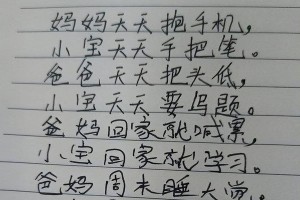 妈妈天天抱手机，
小宝天天手把笔。
爸爸天天把头低，
小宝天天要写题。
爸妈回家就喊累，
小宝回家就学习。
爸妈周末睡大觉，